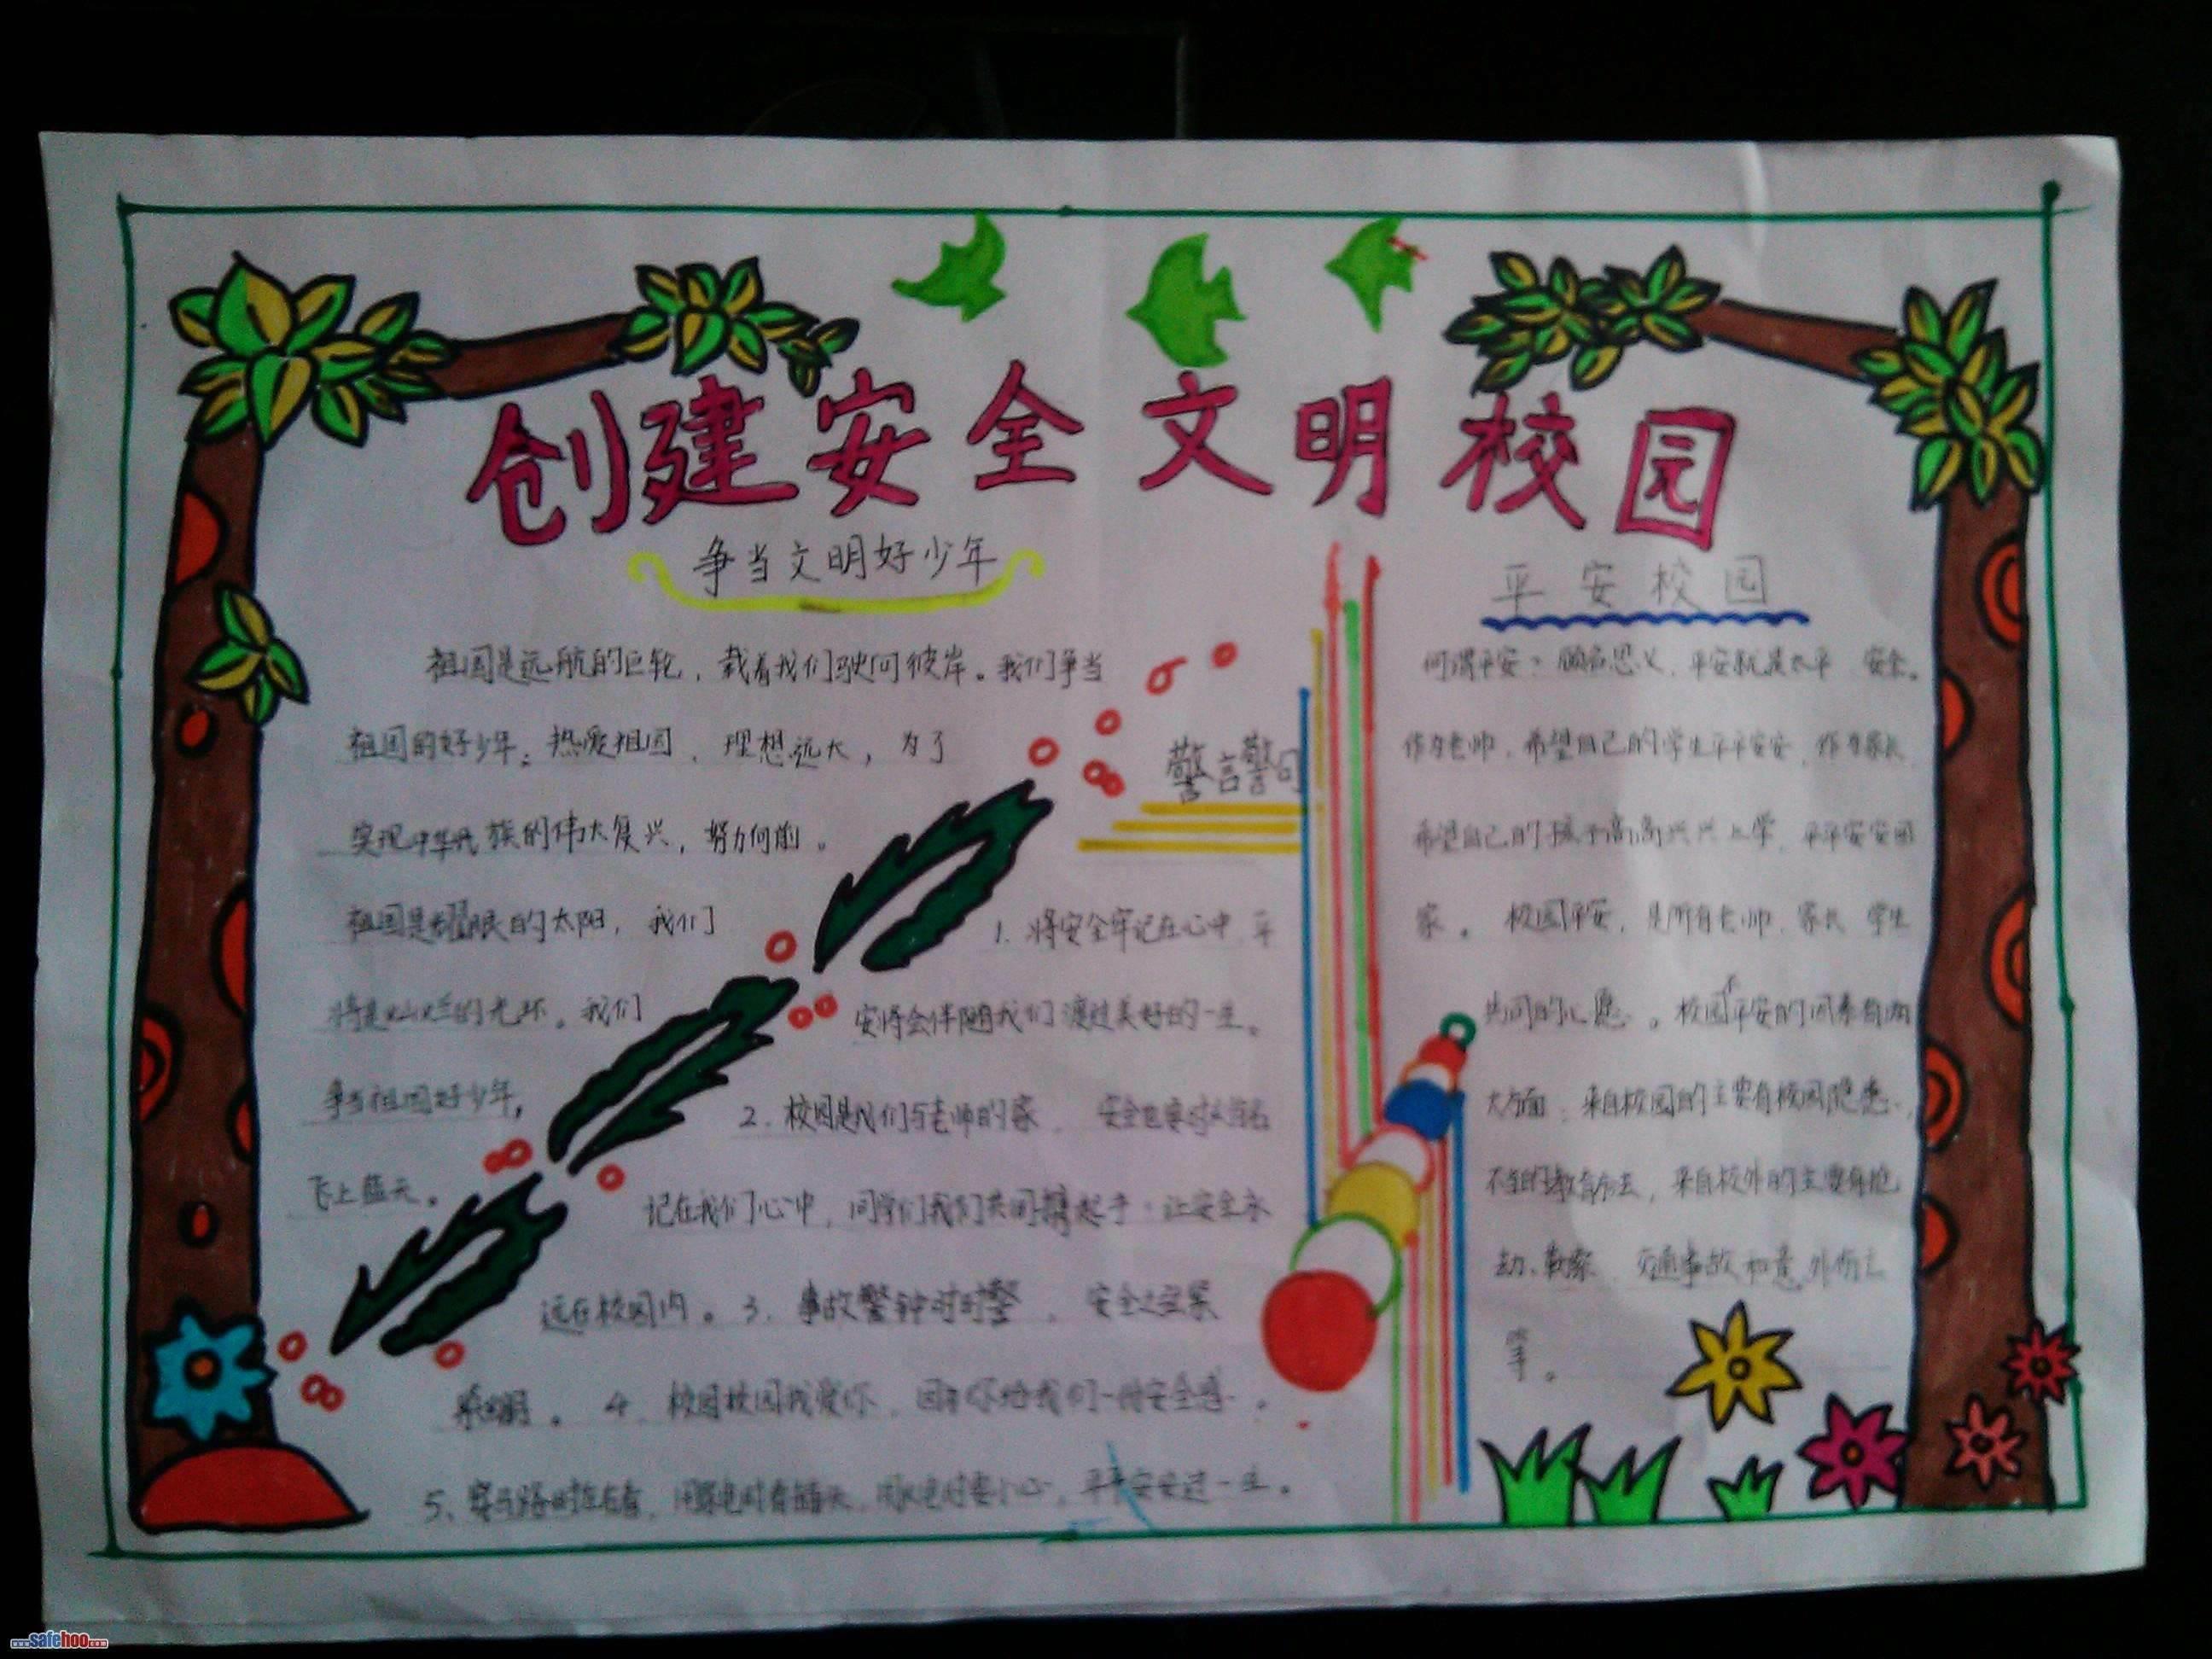 创建安全文明校园
争当文明好少年
祖国是远航的巨轮，载着我们驶向彼岸。我们争当
祖国的好少年：热爱祖国、理想远大，为了
实现中华民族的伟大复兴，努力向前。
祖国是耀眼的太阳，我们
将是灿烂的光环。我们
争当祖国好少年，
飞上蓝天。
警言警句
1. 将安全牢记在心中，平
安将会伴随我们渡过美好的一生。
2. 校园是我们与老师的家，安全也要时
记在我们心中，同学们我们共同携起手：让安全永
远在校园内。3、事故警钟时时
4、校园校园我爱你，因为你给我们一份安全感。
5、平平安安过一生。
平安校园
何谓平安？顾名思义，平安就是太平 安全。
作为老师，希望自己的学生平平安安，作为家长
希望自己的孩子高高兴兴上学，平平安安回
家。校园平安，是所有老师、家长 学生
共同的心愿。校园平安的因素有两
大方面：来自校园的主要有校园隐患、
不当的教育方法，来自校外的主要有抢
劫、勒索、交通事故和意外伤亡
等。
www.safehoo.com